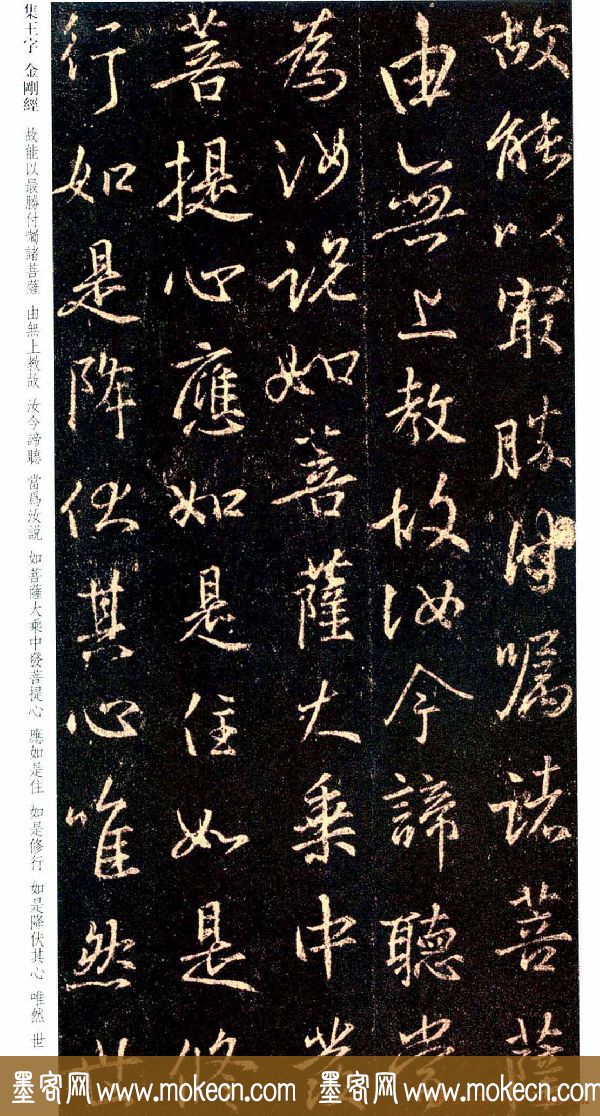 故能以最勝付囑諸菩薩
由無上教故汝今諦聽當
為汝說如菩薩大乘中發
菩提心應如是住如是修
行如是降伏其心唯然世
集王字 金剛經 故能以最勝付囑諸菩薩 由無上教故 汝今諦聽 當爲汝説 如菩薩大乘中發菩提心 應如是住 如是修行 如是降伏其心 唯然 世
墨客网 www.mokecn.com 墨客网 www.mokecn.com